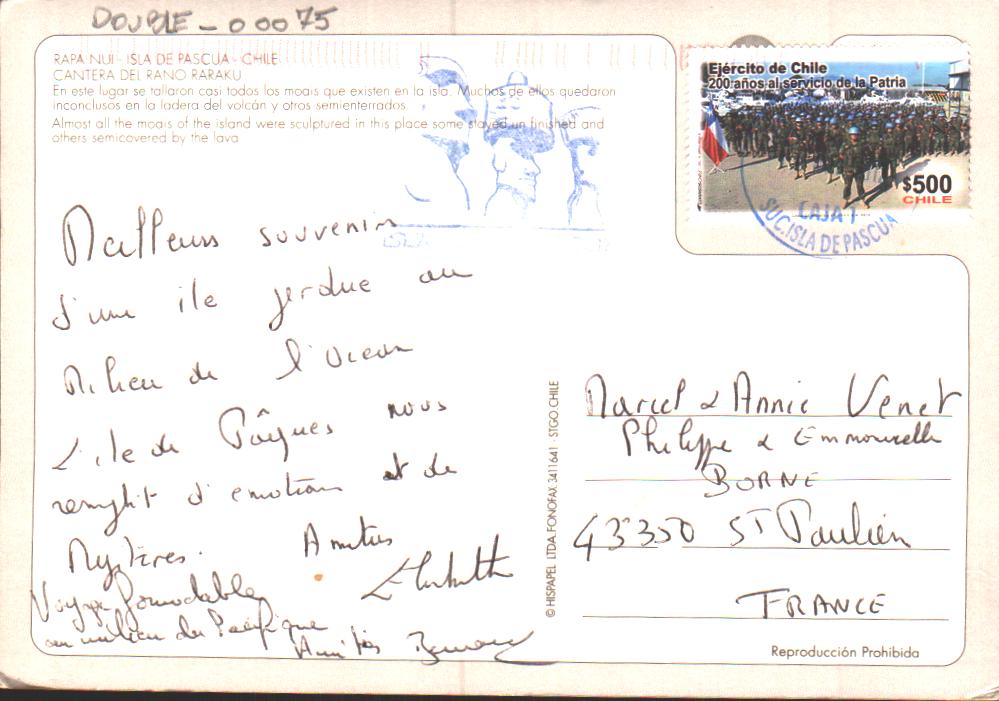 DOUBLE - 00075
RAPA NUI - ISLA DE PASCUA - CHILE
CANTERA DEL RANO RARAKU
En este lugar se tallaron casi todos los moais que existen en la isla. Muchos de ellos quedaron
inconclusos en la ladera del volcán y otros semienterrados.
Almost all the moais of the island were sculptured in this place some stayed un finished and
others semicovered by the lava
Ejército de Chile
200 años al servicio de la Patria
$500
CHILE
CAJA 1
SUC. ISLA DE PASCUA
Meilleurs souvenirs
d'une île perdue au
milieu de l'Océan
L'île de Pâques nous
remplit d'émotions et de
Mystères. Amitiés
Elisabeth
Voyage formidable
au milieu du Pacifique
Amitiés Bernard
© HISPAPEL LTDA. FONOFAX 3411641 - STGO. CHILE
Marcel & Annie Venet
Philippe & Emmanuelle
BORNE
43350 ST Paulien
FRANCE
Reproducción Prohibida